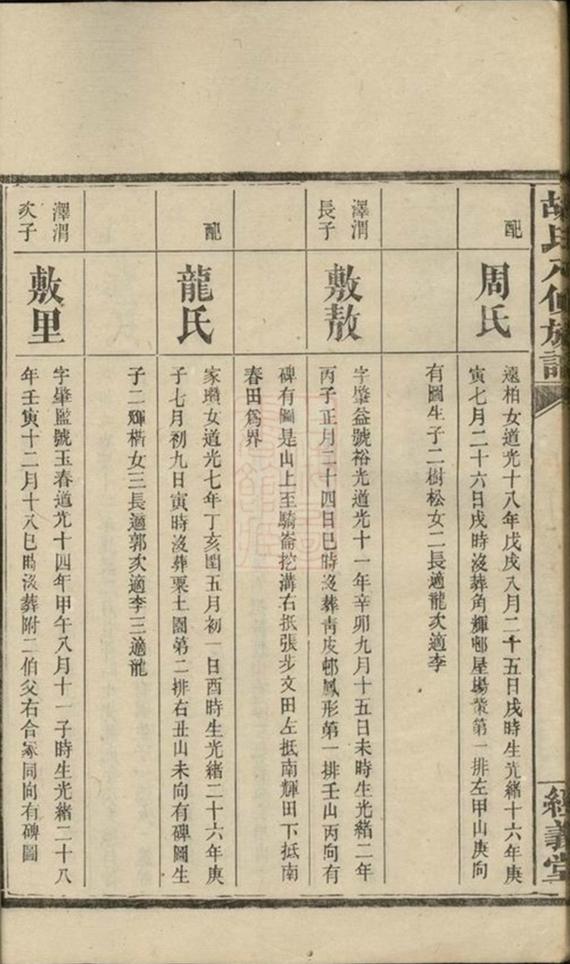 胡氏八修族譜
經義堂
配
周氏
遠柏女道光十八年戊戌八月二十五日戌時生光緒十六年庚
寅七月二十六日戌時沒葬角輝邨屋場棠第一排左甲山庚向
有圖生子二樹松女二長適龍次適李
澤渭
長子
敷敖
字肇益號裕光道光十一年辛卯九月十五日未時生光緒二年
丙子正月二十四日巳時沒葬靑皮邨鳳形第一排壬山丙向有
碑有圖是山上至騎崙挖溝右抵張步文田左抵南輝田下抵南
春田爲界
配
龍氏
家瓚女道光七年丁亥閏五月初一日酉時生光緒二十六年庚
子七月初九日寅時沒葬栗土園第二排右丑山未向有碑圖生
子二輝楷女三長適郭次適李三適龍
澤渭
次子
敷里
字肇監號玉春道光十四年甲午八月十一子時生光緒二十八
年壬寅十二月十八巳時沒葬附二伯父右合冢同向有碑圖